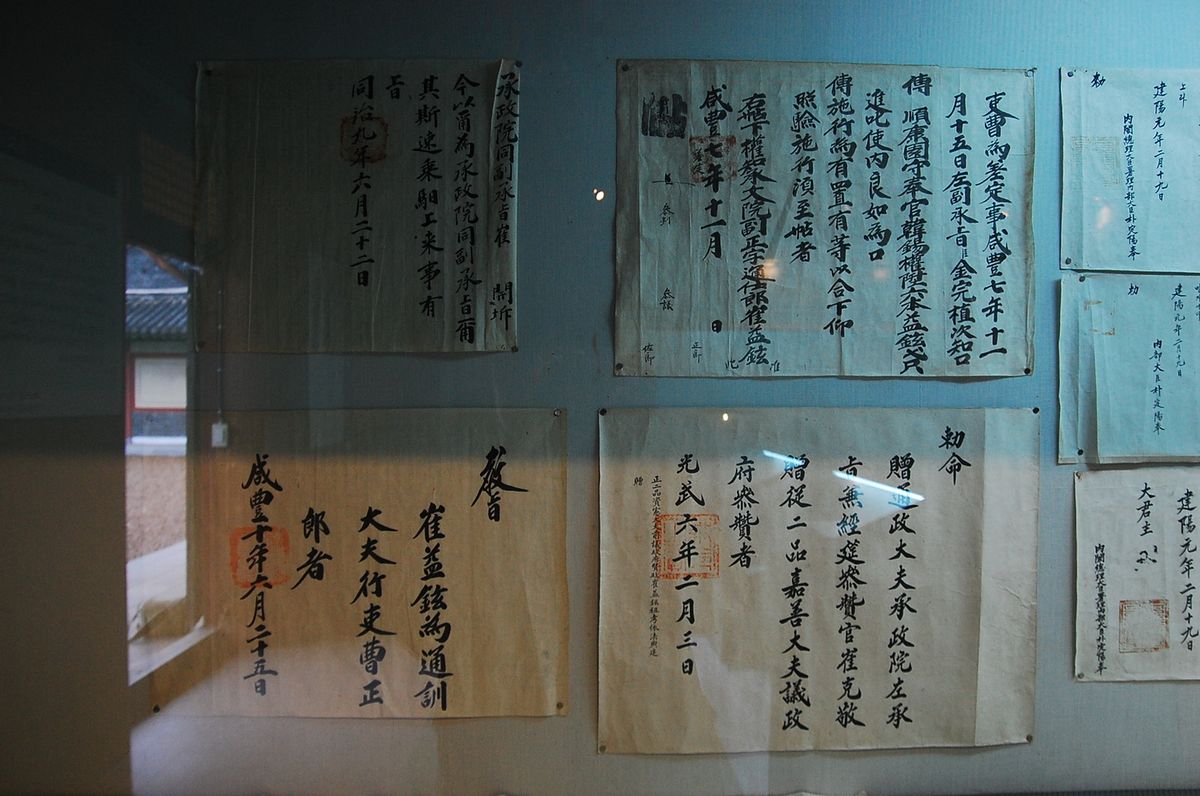 承政院同副承旨崔 開坼
今以爾爲承政院同副承旨爾
其斯速乘馹上來事有
旨
同治九年六月二十二日
吏曹爲差定事咸豊七年十一
月十五日左副承旨臣金完植次知
傳順康園守奉官韓錫權
進叱使內良如爲口
傳施行爲有置有等以合下仰
照驗施行須至帖者
咸豊七年十一月 日
參判
參議
正郎
佐郎
敎旨
崔益鉉爲通訓
大夫行吏曹正
郎者
咸豊十年六月二十五日
勅命
贈通政大夫承政院左承
旨無經筵參贊官崔克敬
贈從二品嘉善大夫議政
府參贊者
光武六年二月三日
贈
勅
建陽元年二月十九日
內閣總理大臣署理內部大臣朴定陽奉
勅
建陽元年二月十九日
內部大臣朴定陽奉
建陽元年二月十九日
大君主
內閣總理大臣署理內部大臣朴定陽奉